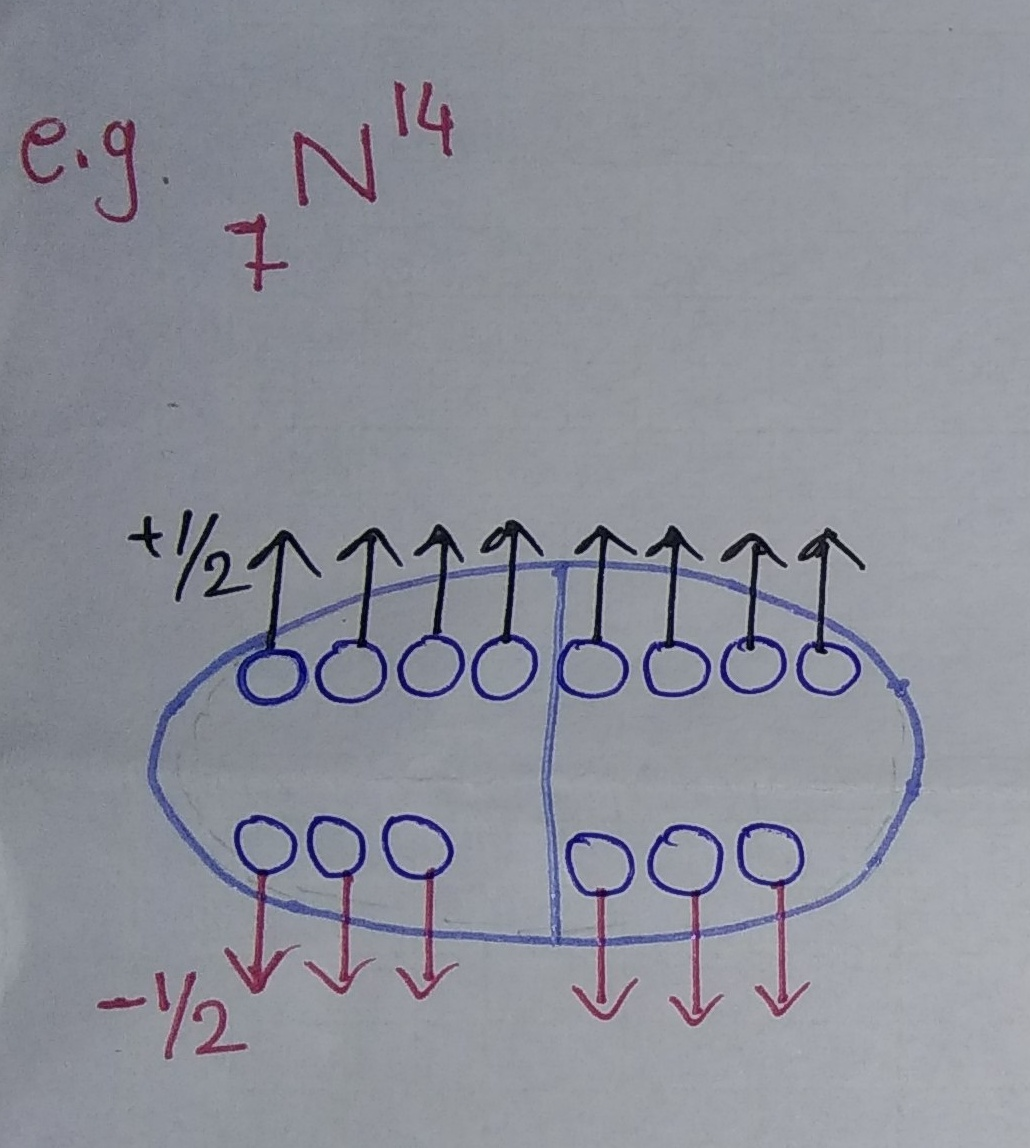 e.g. 7N14
+1/2
-1/2